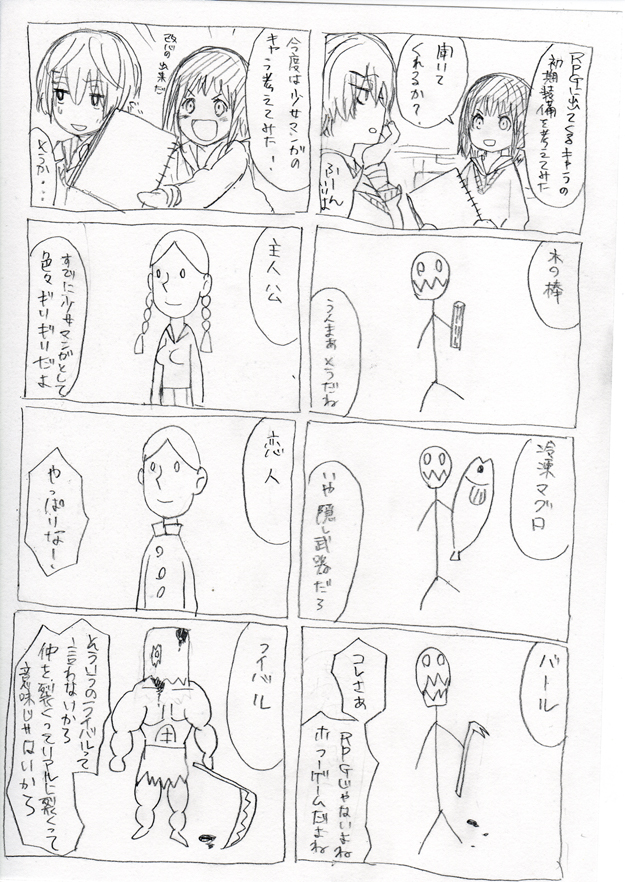 RPGに出てくるキャラの
初期装備を考えてみた
聞いて
くれるか?
ふーん
いいよ
木の棒
うんまぁ そうだね
冷凍マグロ
いや隠し武器だろ
バトル
コレさぁ
RPGじゃないよね
ホラーゲームだよね
今度は少女マンガの
キャラ考えてみた!
改心の出来だ
そうか・・・
主人公
すでに少女マンガとして
色々ギリギリだよ
恋人
やっぱりなー、
ライバル
そういうのライバルって
言わないから
仲を裂くってリアルに裂くって
意味じゃないから